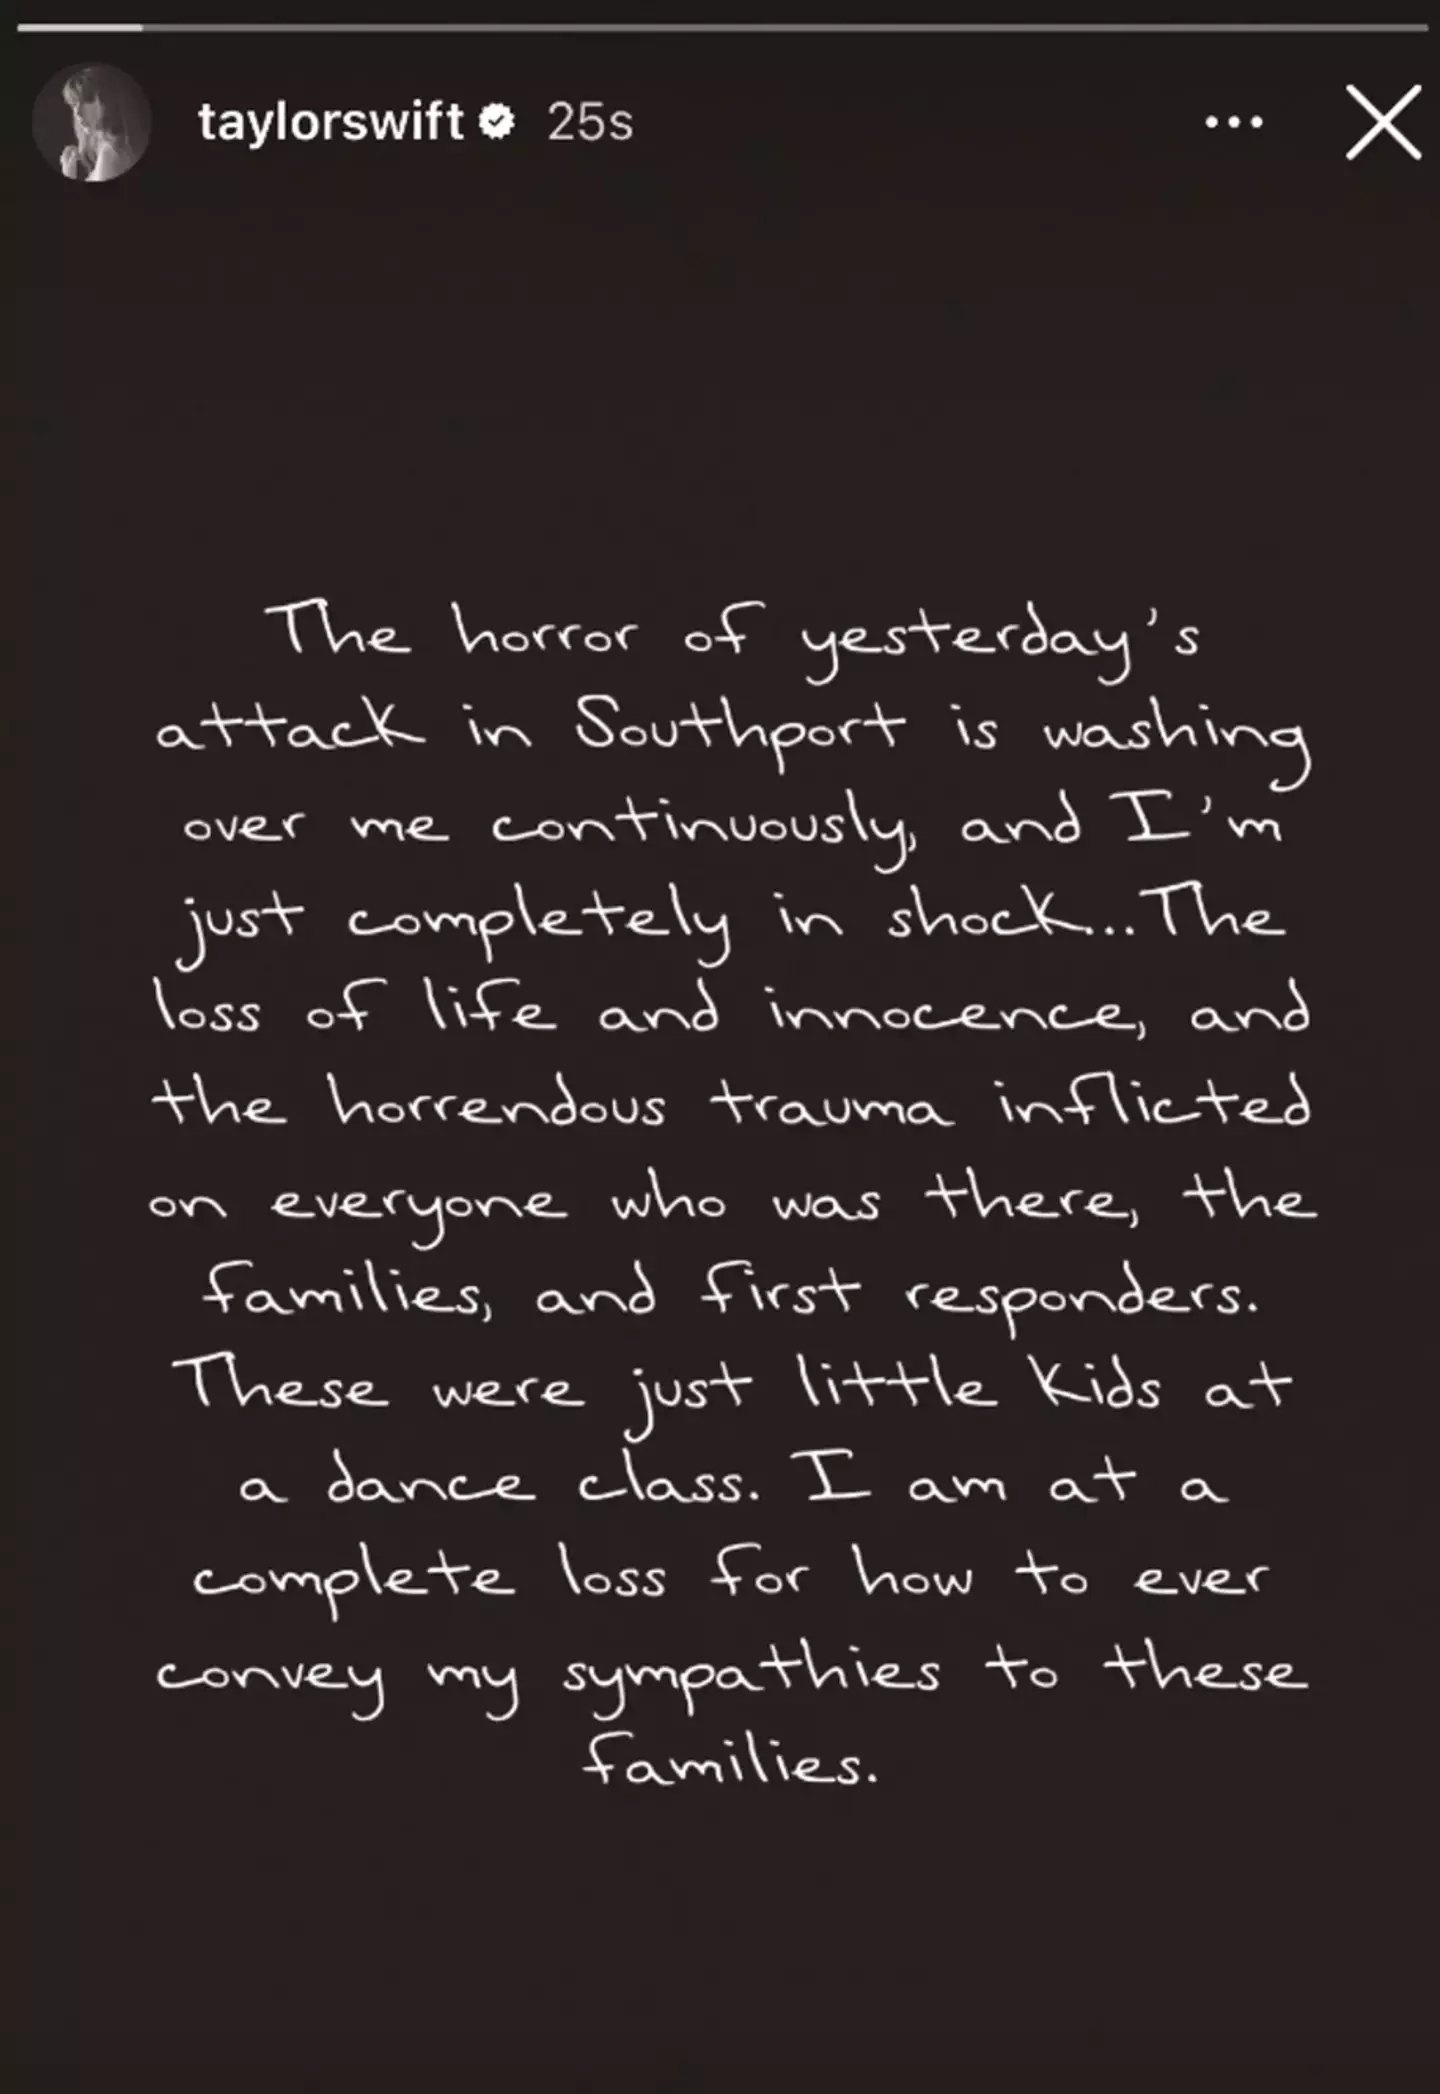 taylorswift 25s
The horror of yesterday's
attack in Southport is washing
over me continuously, and I'm
just completely in shock...The
loss of life and innocence, and
the horrendous trauma inflicted
on everyone who was there, the
families, and first responders.
These were just little kids at
a dance class. I am at a
complete loss for how to ever
convey my sympathies to these
families.